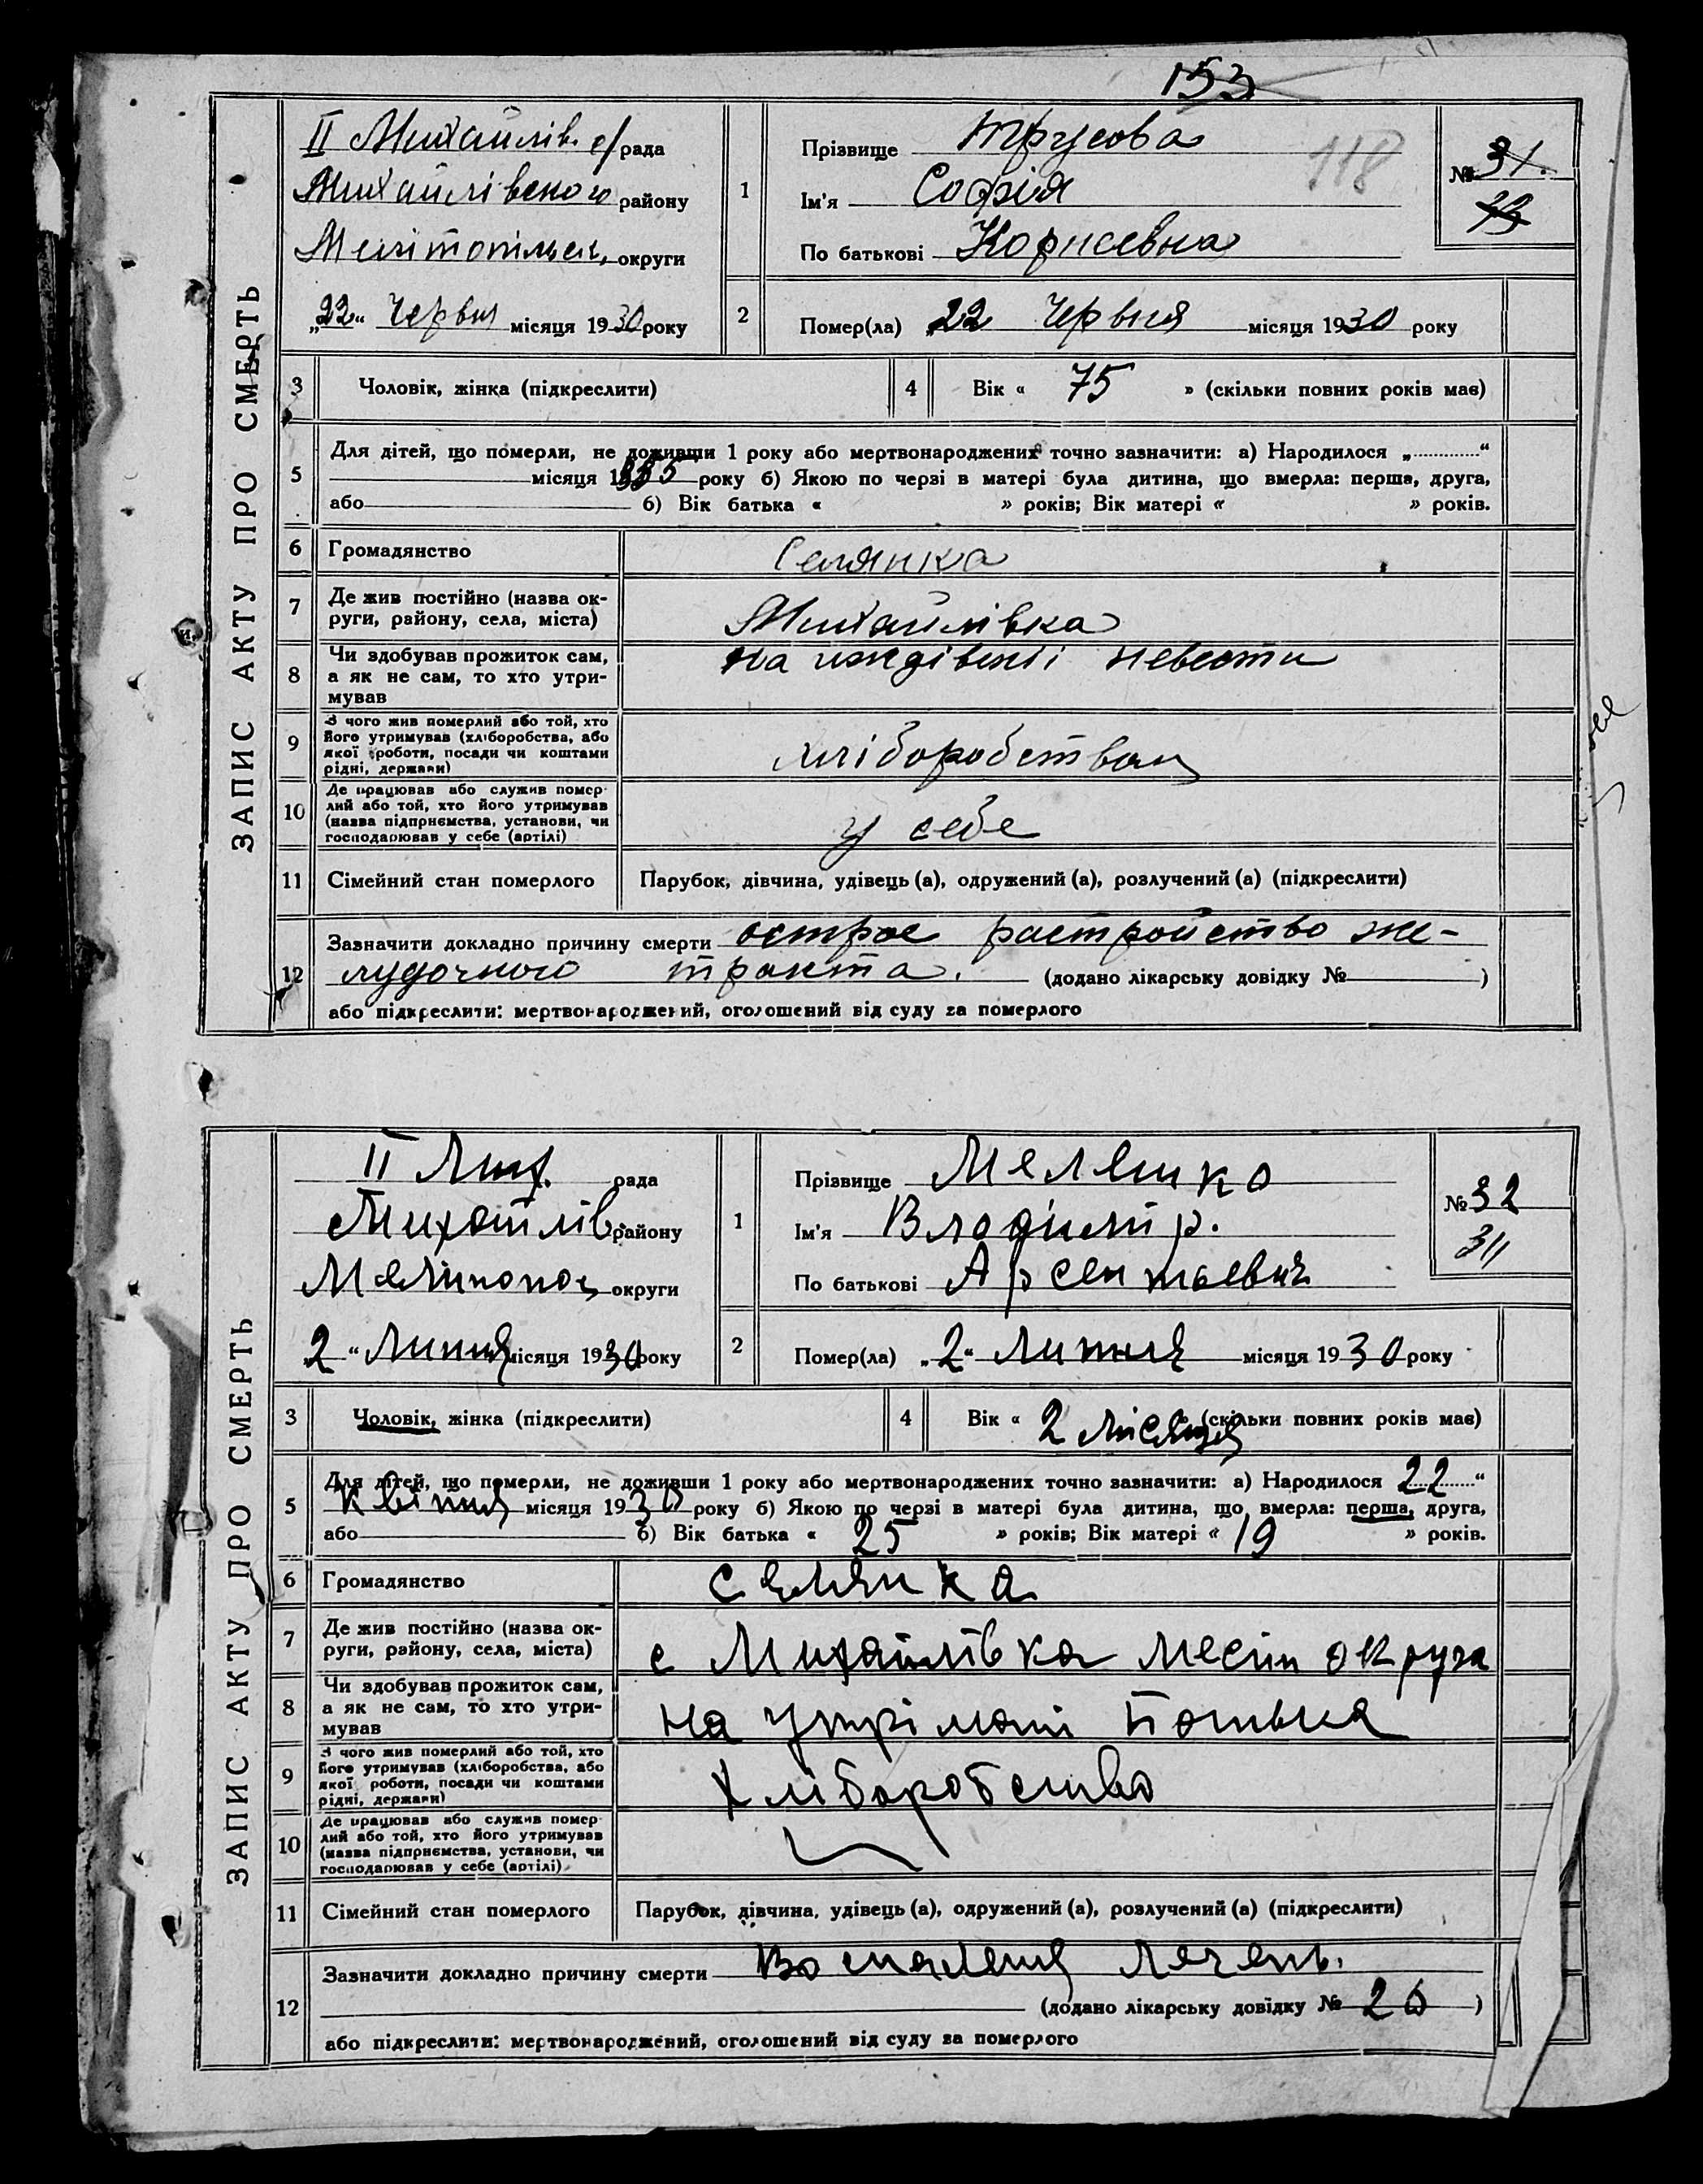 153
118
ЗАПИС АКТУ ПРО СМЕРТЬ
II Михайлів. с/рада
Михайлівского району
Мелітопільск. округи
„22“ Червня місяця 1930 року
1
Прізвище Трусова
Ім'я Софія
По батькові Корнеевна
№ 31.
33
2
Помер(ла) „22 Червня місяця 1930 року
3 Чоловік, жінка (підкреслити)
4 Вік « 75 » (скільки повних років має)
5 Для дітей, що померли, не доживши 1 року або мертвонароджених точно зазначити: а) Народилося „ “
місяця 1 року б) Якою по черзі в матері була дитина, що вмерла: перша, друга,
або б) Вік батька « » років; Вік матері « » років.
6 Громадянство Селянка
7 Де жив постійно (назва ок-
руги, району, села, міста) Михайлівка
8 Чи здобував прожиток сам,
а як не сам, то хто утри-
мував на иждівенії невести
9 З чого жив померлий або той, хто
його утримував (хліборобства, або
якої роботи, посади чи коштами
рідні, держави) хліборобством
10 Де працював або служив помер-
лий або той, хто його утримував
(назва підприємства, установи, чи
господарював у себе (артілі) у себе
11 Сімейний стан померлого Парубок, дівчина, удівець (а), одружений (а), розлучений (а) (підкреслити)
12 Зазначити докладно причину смерти острое растройство же-
лудочного тракта. (додано лікарську довідку № )
або підкреслити: мертвонароджений, оголошений від суду за померлого
ЗАПИС АКТУ ПРО СМЕРТЬ
II Мих. рада
Михайлів району
округи
2 “ Липня місяця 1930 року
1
Прізвище Меленко
Ім'я Владімір.
По батькові Арсентьевич
№ 32
2
Помер(ла) „2“ Липня місяця 1930 року
3 Чоловік, жінка (підкреслити)
4 Вік « 2 місяця (скільки повних років має)
5 Для дітей, що померли, не доживши 1 року або мертвонароджених точно зазначити: а) Народилося 22 “
Квітня місяця 1930 року б) Якою по черзі в матері була дитина, що вмерла: перша, друга,
або б) Вік батька « 25 » років; Вік матері « 19 » років.
6 Громадянство селянка
7 Де жив постійно (назва ок-
руги, району, села, міста) с Михайлівка округа
8 Чи здобував прожиток сам,
а як не сам, то хто утри-
мував на утрімані Батька
9 З чого жив померлий або той, хто
його утримував (хліборобства, або
якої роботи, посади чи коштами
рідні, держави) Хліборобство
10 Де працював або служив помер-
лий або той, хто його утримував
(назва підприємства, установи, чи
господарював у себе (артілі)
11 Сімейний стан померлого Парубок, дівчина, удівець (а), одружений (а), розлучений (а) (підкреслити)
12 Зазначити докладно причину смерти
(додано лікарську довідку № 26 )
або підкреслити: мертвонароджений, оголошений від суду за померлого